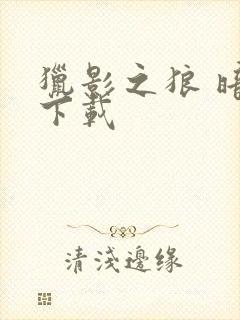 獵影之狼 暗
下載
清淺邊缘